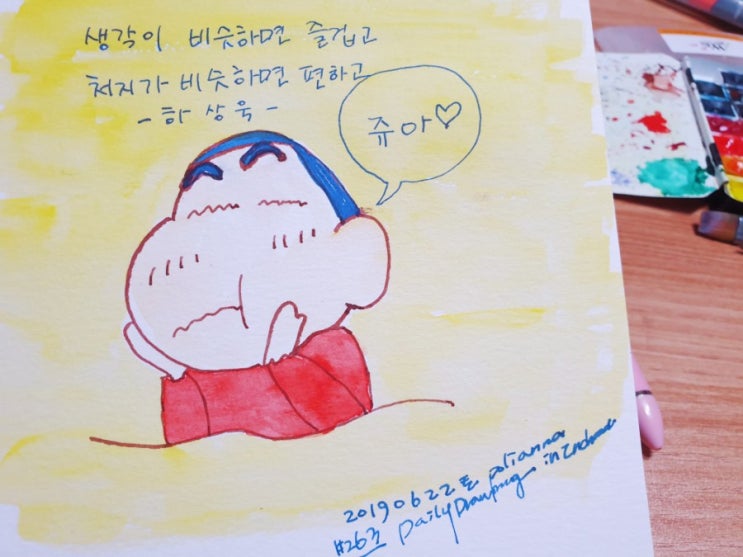 생각이 비슷하면 즐겁고
처지가 비슷하면 편하고
- 하 상 욱 -
쥬아♡
2019 06 22 토 polianna
#26주 Daily Drawing in